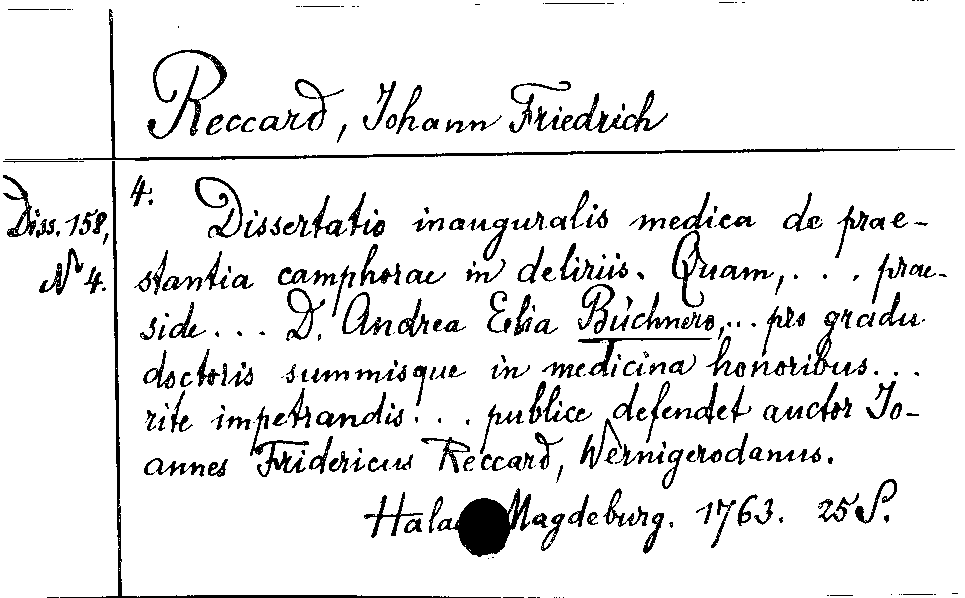 Reccard, Johann Friedrich
Diss. 158,
N 4.
4.
Dissertatio inauguralis medica de prae-
stantia camphorae in deliriis. Quam, . . . prae-
side . . . D. Andrea Elia Büchnero, . . . pro gradu
doctoris summisque in medicina honoribus . . .
rite impetrandis . . . publice defendet auctor Jo-
annes Fridericus Reccard, Wernigerodanus.
Halae Magdeburg. 1763. 25 S.